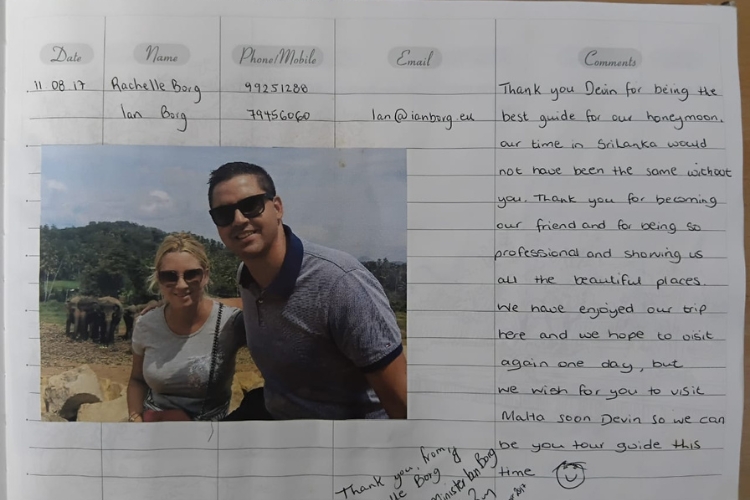 Date Name Phone/Mobile Email Comments
11 08 17 Rachelle Borg 99251288
Ian Borg 79456060 Ian@ianborg.eu
Thank you Devin for being the
best guide for our honeymoon.
our time in SriLanka would
not have been the same without
you. Thank you for becoming
our friend and for being so
professional and showing us
all the beautiful places.
We have enjoyed our trip
here and we hope to visit
again one day, but
we wish for you to visit
Malta soon Devin so we can
be you tour guide this
time
Thank you, from
lle Borg
Minister Ian Borg